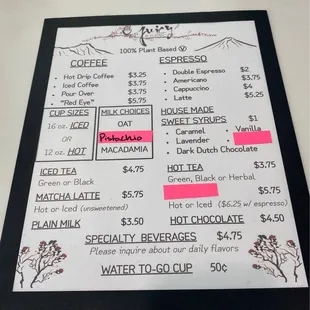 Juicy
100% Plant Based V
COFFEE
• Hot Drip Coffee $3.25
• Iced Coffee $3.75
• Pour Over $3.75
• "Red Eye" $5.75
ESPRESSO
• Double Espresso $2
• Americano $3.75
• Cappuccino $4
• Latte $5.25
CUP SIZES
16 oz. ICED
OR
12 oz. HOT
MILK CHOICES
OAT
Pistachio
MACADAMIA
HOUSE MADE
SWEET SYRUPS $1
• Caramel • Vanilla
• Lavender •
• Dark Dutch Chocolate
ICED TEA $4.75
Green or Black
MATCHA LATTE $5.75
Hot or Iced (unsweetened)
PLAIN MILK $3.50
HOT TEA $3.75
Green, Black or Herbal
$5.75
Hot or Iced ($6.25 w/ espresso)
HOT CHOCOLATE $4.50
SPECIALTY BEVERAGES $4.75
Please inquire about our daily flavors
WATER TO-GO CUP 50¢